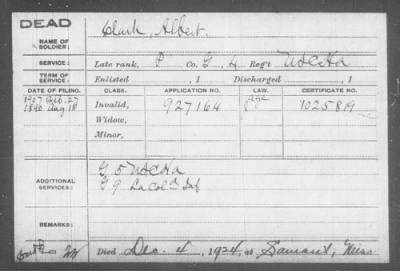 DEAD
NAME OF SOLDIER: Clark, Albert.
SERVICE: Late rank, P Co. G, 4 Reg't USCHa
TERM OF SERVICE: Enlisted , 1 Discharged , 1
DATE OF FILING. CLASS. APPLICATION NO. LAW. CERTIFICATE NO.
1907 Feb. 27
1890 Aug 18 Invalid, 927164 Age 1025819
Widow,
Minor,
ADDITIONAL SERVICES: G 5 USCHa
G 9 La Col'd Inf
REMARKS:
Died Dec. 4, 1924, at Miss.